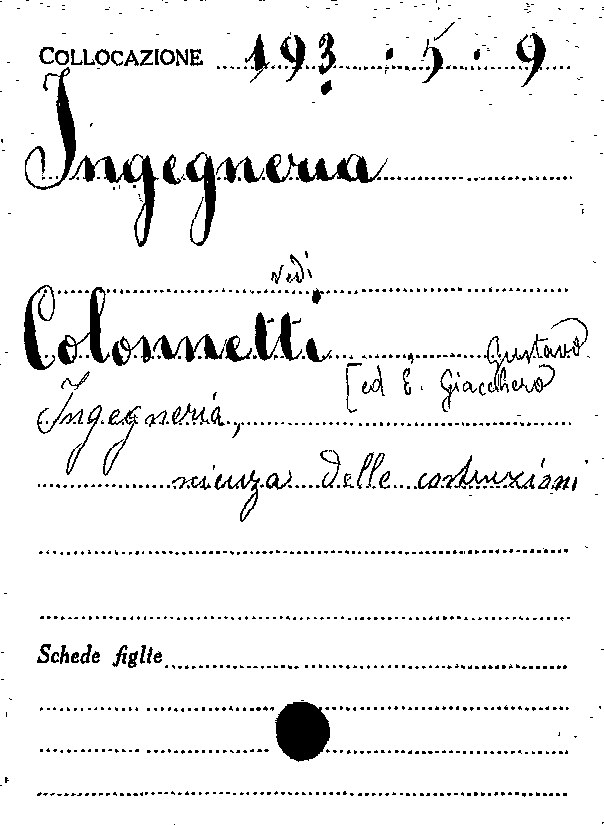 COLLOCAZIONE 193 . 5 . 9
Ingegneria
vedi
Colonnetti, Gustavo
[ed E. Giacchero
Ingegneria,
scienza delle costruzioni
Schede figlie